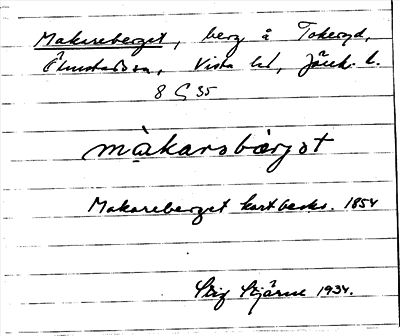 Makareberget, berg å Tokeryd,
Ölmstad sn, Vista hd, Jönk. l.
8 G 35
màkarəbàrjət
Makareberget kart beskr. 1854
Stig Stjärne 1934.